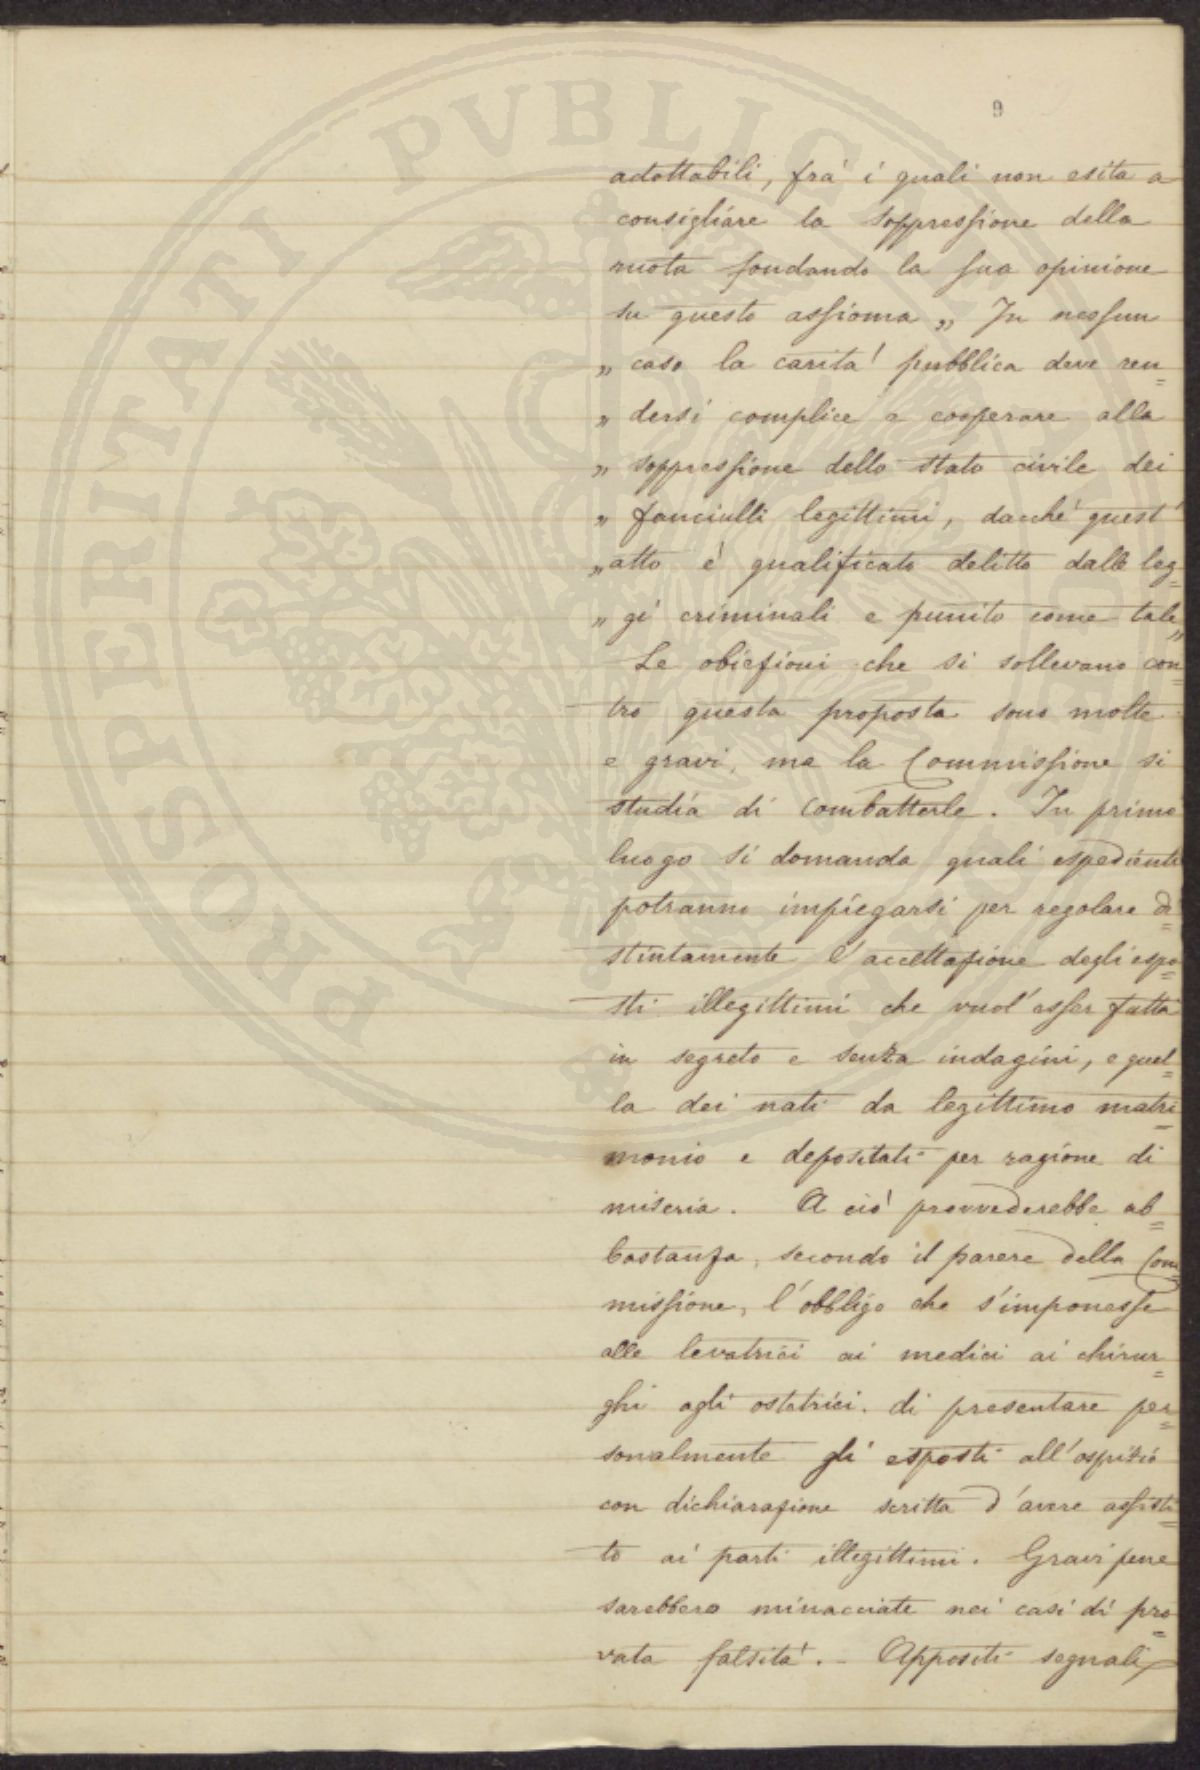 9
PROSPERITATI PVBLICAE
adottabili, frà i quali non esita a
consigliare la soppressione della
ruota fondando la sua opinione
su questo assioma „ In nessun
„ caso la carita' pubblica deve ren=
„ dersi complice e cooperare alla
„ soppressione dello stato civile dei
„ fanciulli legittimi, dacchè quest'
„ atto è qualificato delitto dalle leg=
„ gi criminali e punito come tale „
Le obiezioni che si sollevano con=
tro questa proposta sono molte
e gravi, ma la Commissione si
studia di combatterle. In primo
luogo si domanda quali espedienti
potranno impiegarsi per regolare di=
stintamente l'accettazione degli espo=
sti illegittimi che vuol'esser fatta
in segreto e senza indagini, e quel=
la dei nati da legittimo matri=
monio e depositati per ragione di
miseria. A ciò provvederebbe ab=
bastanza, secondo il parere della Com=
missione, l'obbligo che s'imponesse
alle levatrici ai medici ai chirur=
ghi agli ostetrici. di presentare per=
sonalmente gli esposti all'ospizio
con dichiarazione scritta d'avere assisti=
to ai parti illegittimi. Gravi pene
sarebbero minacciate nei casi di pro=
vata falsità. - Appositi segnali